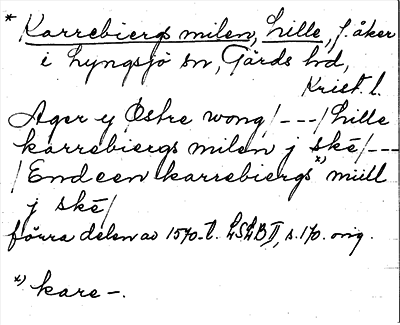 * Karrebiergs milen, Lille, f. åker
i Lyngsjö sn, Gärds hd,
Krist. l.
Ager y Østre wong /---/ Lille
karrebiergs milen j ske /---
/ Endeen karrebiergs x) müll
j ske /
förra delen av 1570-t. LSLB II, s. 170. orig.
x) kare -.